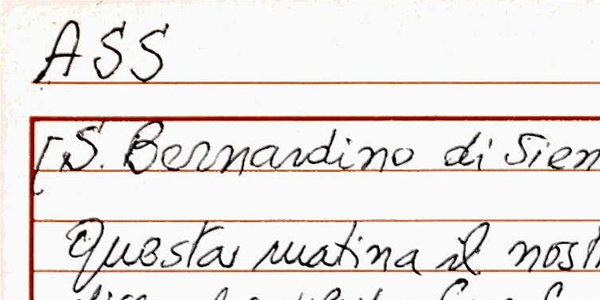 ASS
[S. Bernardino di Sien
Questa matina il nost